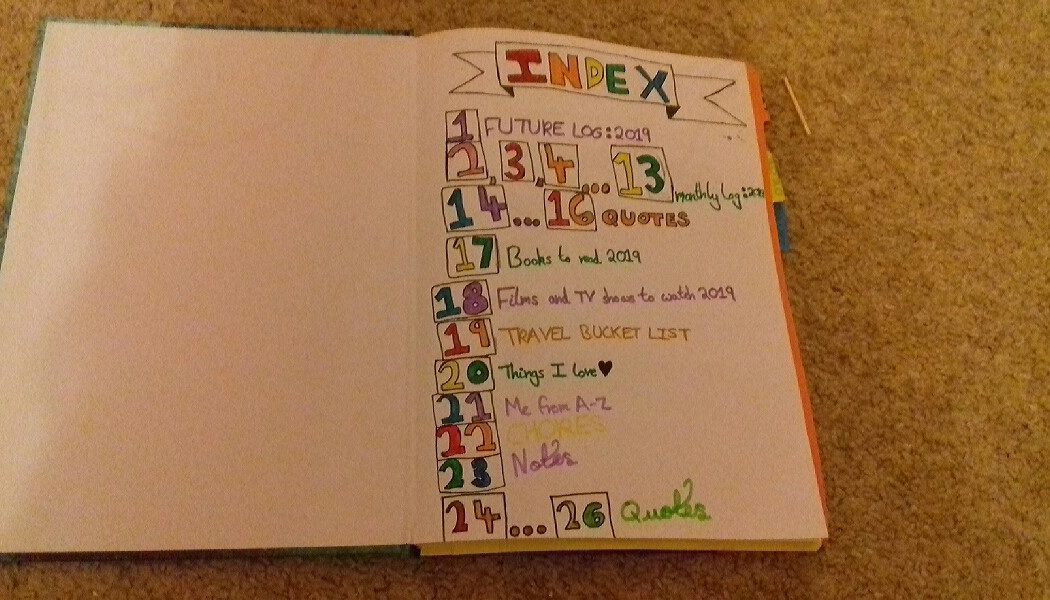 INDEX
1 FUTURE LOG: 2019
2, 3, 4 ... 13 monthly log:
14 ... 16 QUOTES
17 Books to read 2019
18 Films and TV shows to watch 2019
19 TRAVEL BUCKET LIST
20 Things I love♥
21 Me from A-Z
22 CHORES
23 Notes
24 ... 26 Quotes